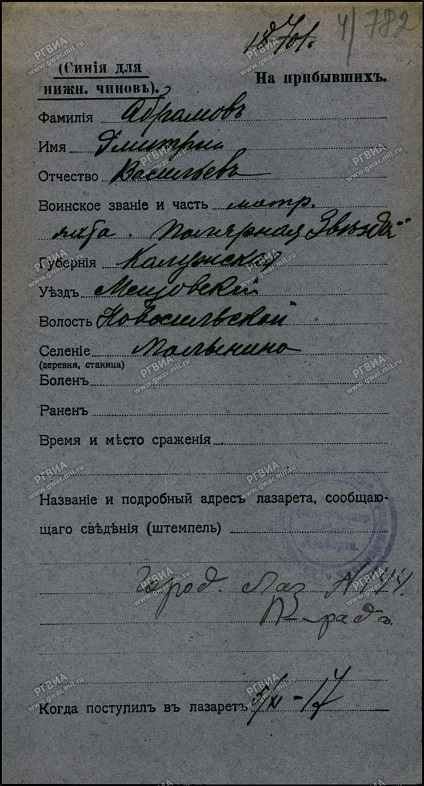 4/782
(Синія для нижн. чиновъ).
На прибывшихъ.
Фамилія Абрамовъ
Имя Дмитрий
Отчество Васильевъ
Воинское званіе и часть матр.
яхта "Полярная Звѣзда"
Губернія Калужская
Уѣздъ Мещовский
Волость Новосильской
Селеніе Малынино
(деревня, станица)
Боленъ
Раненъ
Время и мѣсто сраженія
Названіе и подробный адресъ лазарета, сообщаю-
щаго свѣдѣнія (штемпель)
Город. Лаз. № 144.
П-градъ
Когда поступилъ въ лазаретъ 5/XI - 17
РГВИА
www.gwar.mil.ru